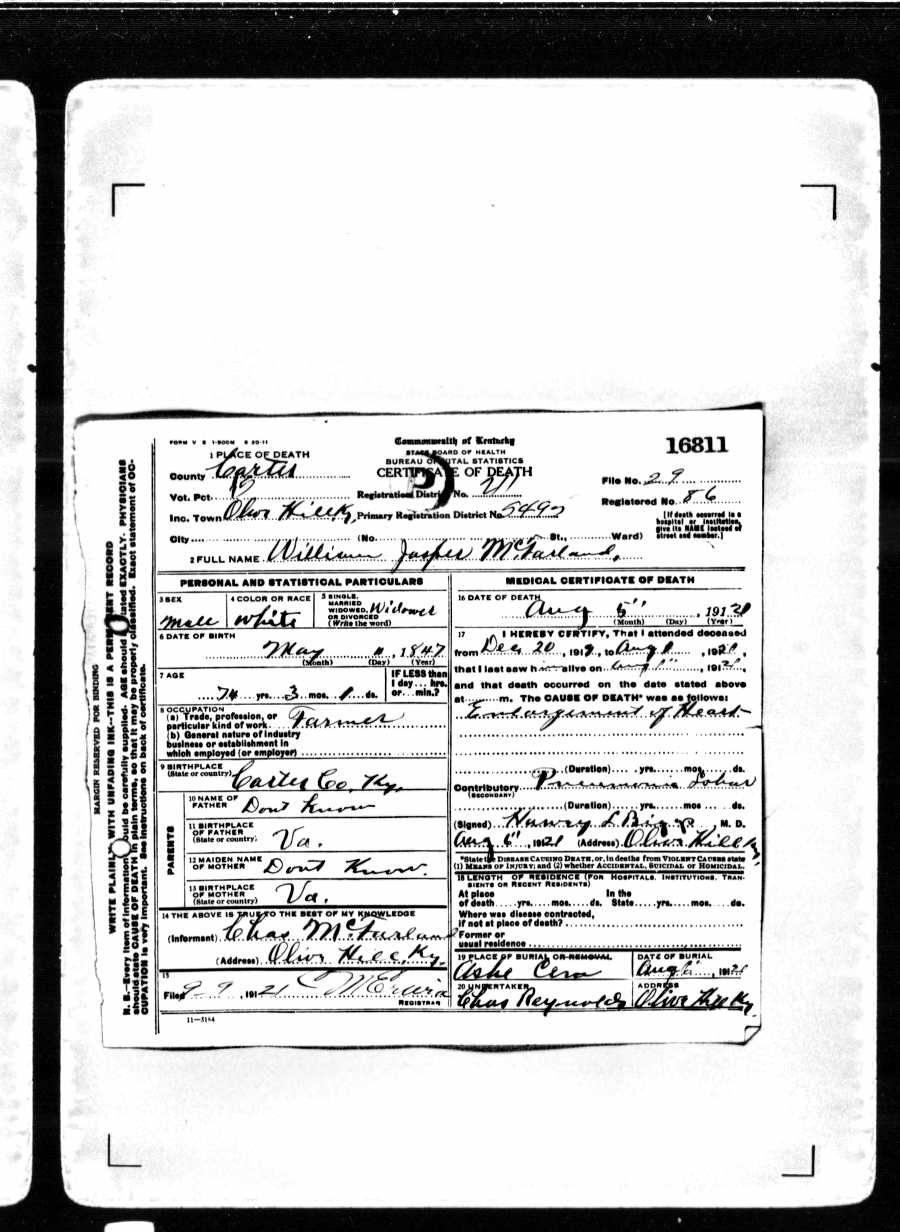 FORM V S 1-500M 6 20-11
Commonwealth of Kentucky
STATE BOARD OF HEALTH
BUREAU OF VITAL STATISTICS
CERTIFICATE OF DEATH
16811
1 PLACE OF DEATH
County Carter
Vot. Pct.
Registration District No. 211
File No. 29
Inc. Town Olive Hill Ky, Primary Registration District No. 5492
Registered No. 86
City (No. St., Ward)
[If death occurred in a hospital or institution, give its NAME instead of street and number.]
2 FULL NAME William Jasper McFarland,
MARGIN RESERVED FOR BINDING
WRITE PLAINLY WITH UNFADING INK--THIS IS A PERMANENT RECORD
N. B.--Every item of information should be carefully supplied. AGE should be stated EXACTLY. PHYSICIANS
should state CAUSE OF DEATH in plain terms, so that it may be properly classified. Exact statement of OC-
CUPATION is very important. See instructions on back of certificate.
PERSONAL AND STATISTICAL PARTICULARS
3 SEX
male
4 COLOR OR RACE
White
5 SINGLE,
MARRIED
WIDOWED,
OR DIVORCED
(Write the word)
Widower
6 DATE OF BIRTH
May , 1847
(Month) (Day) (Year)
7 AGE
74 yrs. 3 mos. 1 ds.
IF LESS than
1 day... hrs.
or... min.?
8 OCCUPATION
(a) Trade, profession, or
particular kind of work. Farmer
(b) General nature of industry
business or establishment in
which employed (or employer)
9 BIRTHPLACE
(State or country) Carter Co, Ky,
PARENTS
10 NAME OF
FATHER Dont Know
11 BIRTHPLACE
OF FATHER
(State or country) Va.
12 MAIDEN NAME
OF MOTHER Dont Know.
13 BIRTHPLACE
OF MOTHER
(State or country) Va.
14 THE ABOVE IS TRUE TO THE BEST OF MY KNOWLEDGE
(Informant) Chas McFarland
(Address) Olive Hill, Ky.
15
Filed 9-9, 1921
REGISTRAR
11-3184
MEDICAL CERTIFICATE OF DEATH
16 DATE OF DEATH
Aug 5" , 1921
(Month) (Day) (Year)
17 I HEREBY CERTIFY, That I attended deceased
from Dec 20, 191 , to Aug 1 , 1921,
that I last saw h alive on Aug 1" , 1921,
and that death occurred on the date stated above
at m. The CAUSE OF DEATH* was as follows:
Enlargement of Heart
(Duration) yrs. mos. ds.
Contributory Pneumonia Lobar
(SECONDARY)
(Duration) yrs. mos ds.
(Signed) M. D.
Aug 6", 1921 (Address) Olive Hill Ky,
*State the DISEASE CAUSING DEATH, or, in deaths from VIOLENT CAUSES state
(1) MEANS OF INJURY; and (2) whether ACCIDENTAL, SUICIDAL or HOMICIDAL.
18 LENGTH OF RESIDENCE (FOR HOSPITALS, INSTITUTIONS, TRAN-
SIENTS OR RECENT RESIDENTS)
At place In the
of death yrs. mos. ds. State yrs. mos. ds.
Where was disease contracted,
if not at place of death?
Former or
usual residence
19 PLACE OF BURIAL OR REMOVAL
DATE OF BURIAL
Aug 6", 1921
20 UNDERTAKER
Chas Reynolds
ADDRESS
Olive Hill Ky.